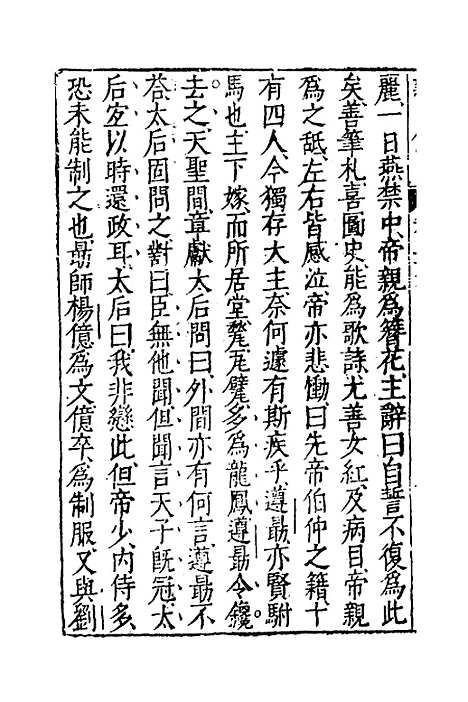 麗一日燕禁中、帝親爲簪花、主辭曰自誓不復爲此
矣善筆札、喜圖史、能爲歌詩、尤善女紅、及病目、帝親
爲之䑛、左右皆感泣、帝亦悲慟曰先帝伯仲之籍、十
有四人、今獨存大主、奈何遽有斯疾乎、遵勗亦賢駙
馬也、主下嫁、而所居堂甃瓦甓多爲龍鳳、遵勗令鑱
去之、天聖間、章獻太后問曰、外間亦有何言、遵勗不
荅、太后固問之、對曰、臣無他聞、但聞言天子旣冠、太
后宐以時還政耳、太后曰、我非戀此、但帝少、内侍多、
恐未能制之也、勗師楊億爲文、億卒、爲制服、又與劉